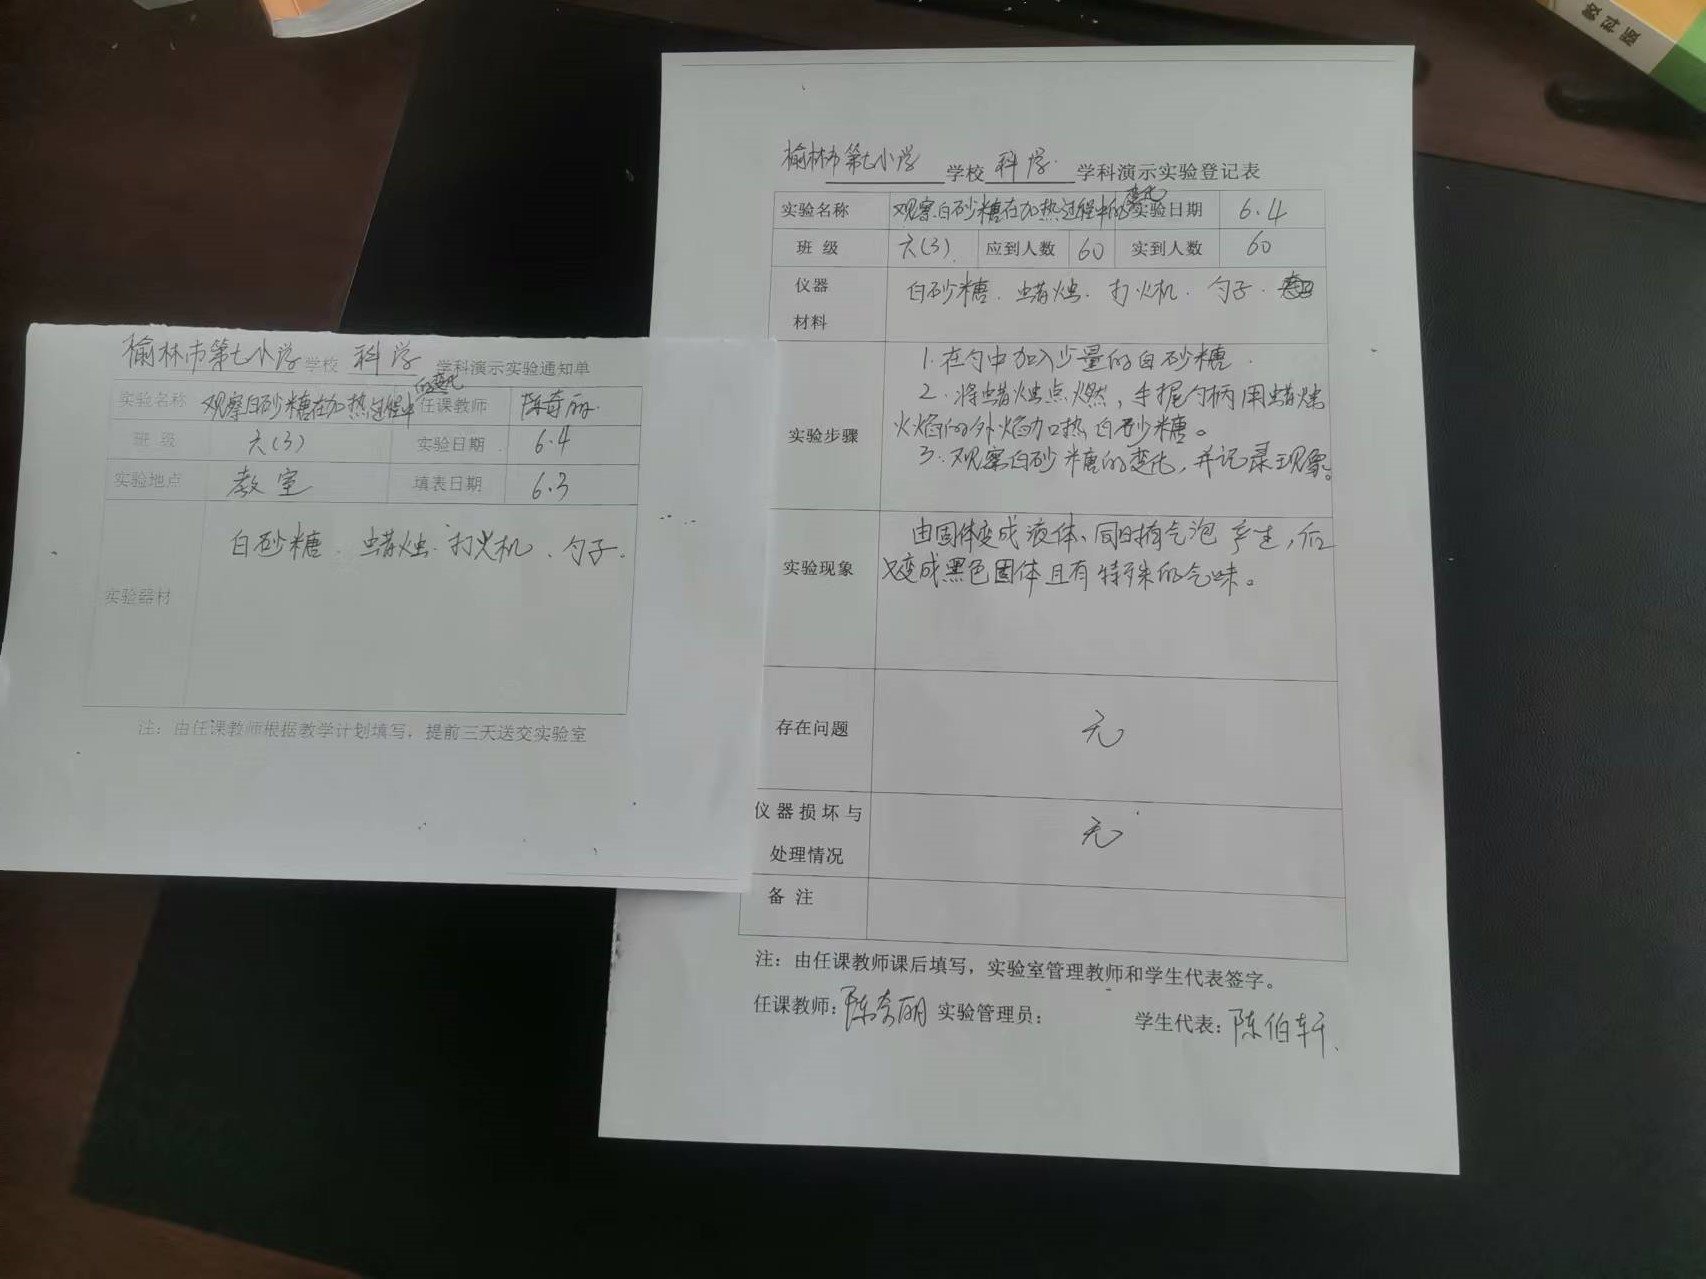 榆林市第七小学 学校 科学 学科演示实验通知单
实验名称 观察白砂糖在加热过程中的变化 任课教师
班 级 六(3) 实验日期 6.4
实验地点 教室 填表日期 6.3
实验器材 白砂糖、蜡烛、打火机、勺子.
注：由任课教师根据教学计划填写，提前三天送交实验室
榆林市第七小学 学校 科学 学科演示实验登记表
实验名称 观察白砂糖在加热过程中的变化 实验日期 6.4
班 级 六(3). 应到人数 60 实到人数 60
仪器
材料
白砂糖、蜡烛、打火机、勺子.
实验步骤
1.在勺中加入少量的白砂糖.
2.将蜡烛点燃，手握勺柄用蜡烛
火焰的外焰加热白砂糖。
3.观察白砂糖的变化，并记录现象。
实验现象
由固体变成液体、同时有气泡产生，后
又变成黑色固体且有特殊的气味。
存在问题 无
仪器损坏与
处理情况
无
备 注
注：由任课教师课后填写，实验室管理教师和学生代表签字。
任课教师: 实验管理员: 学生代表: 陈伯轩